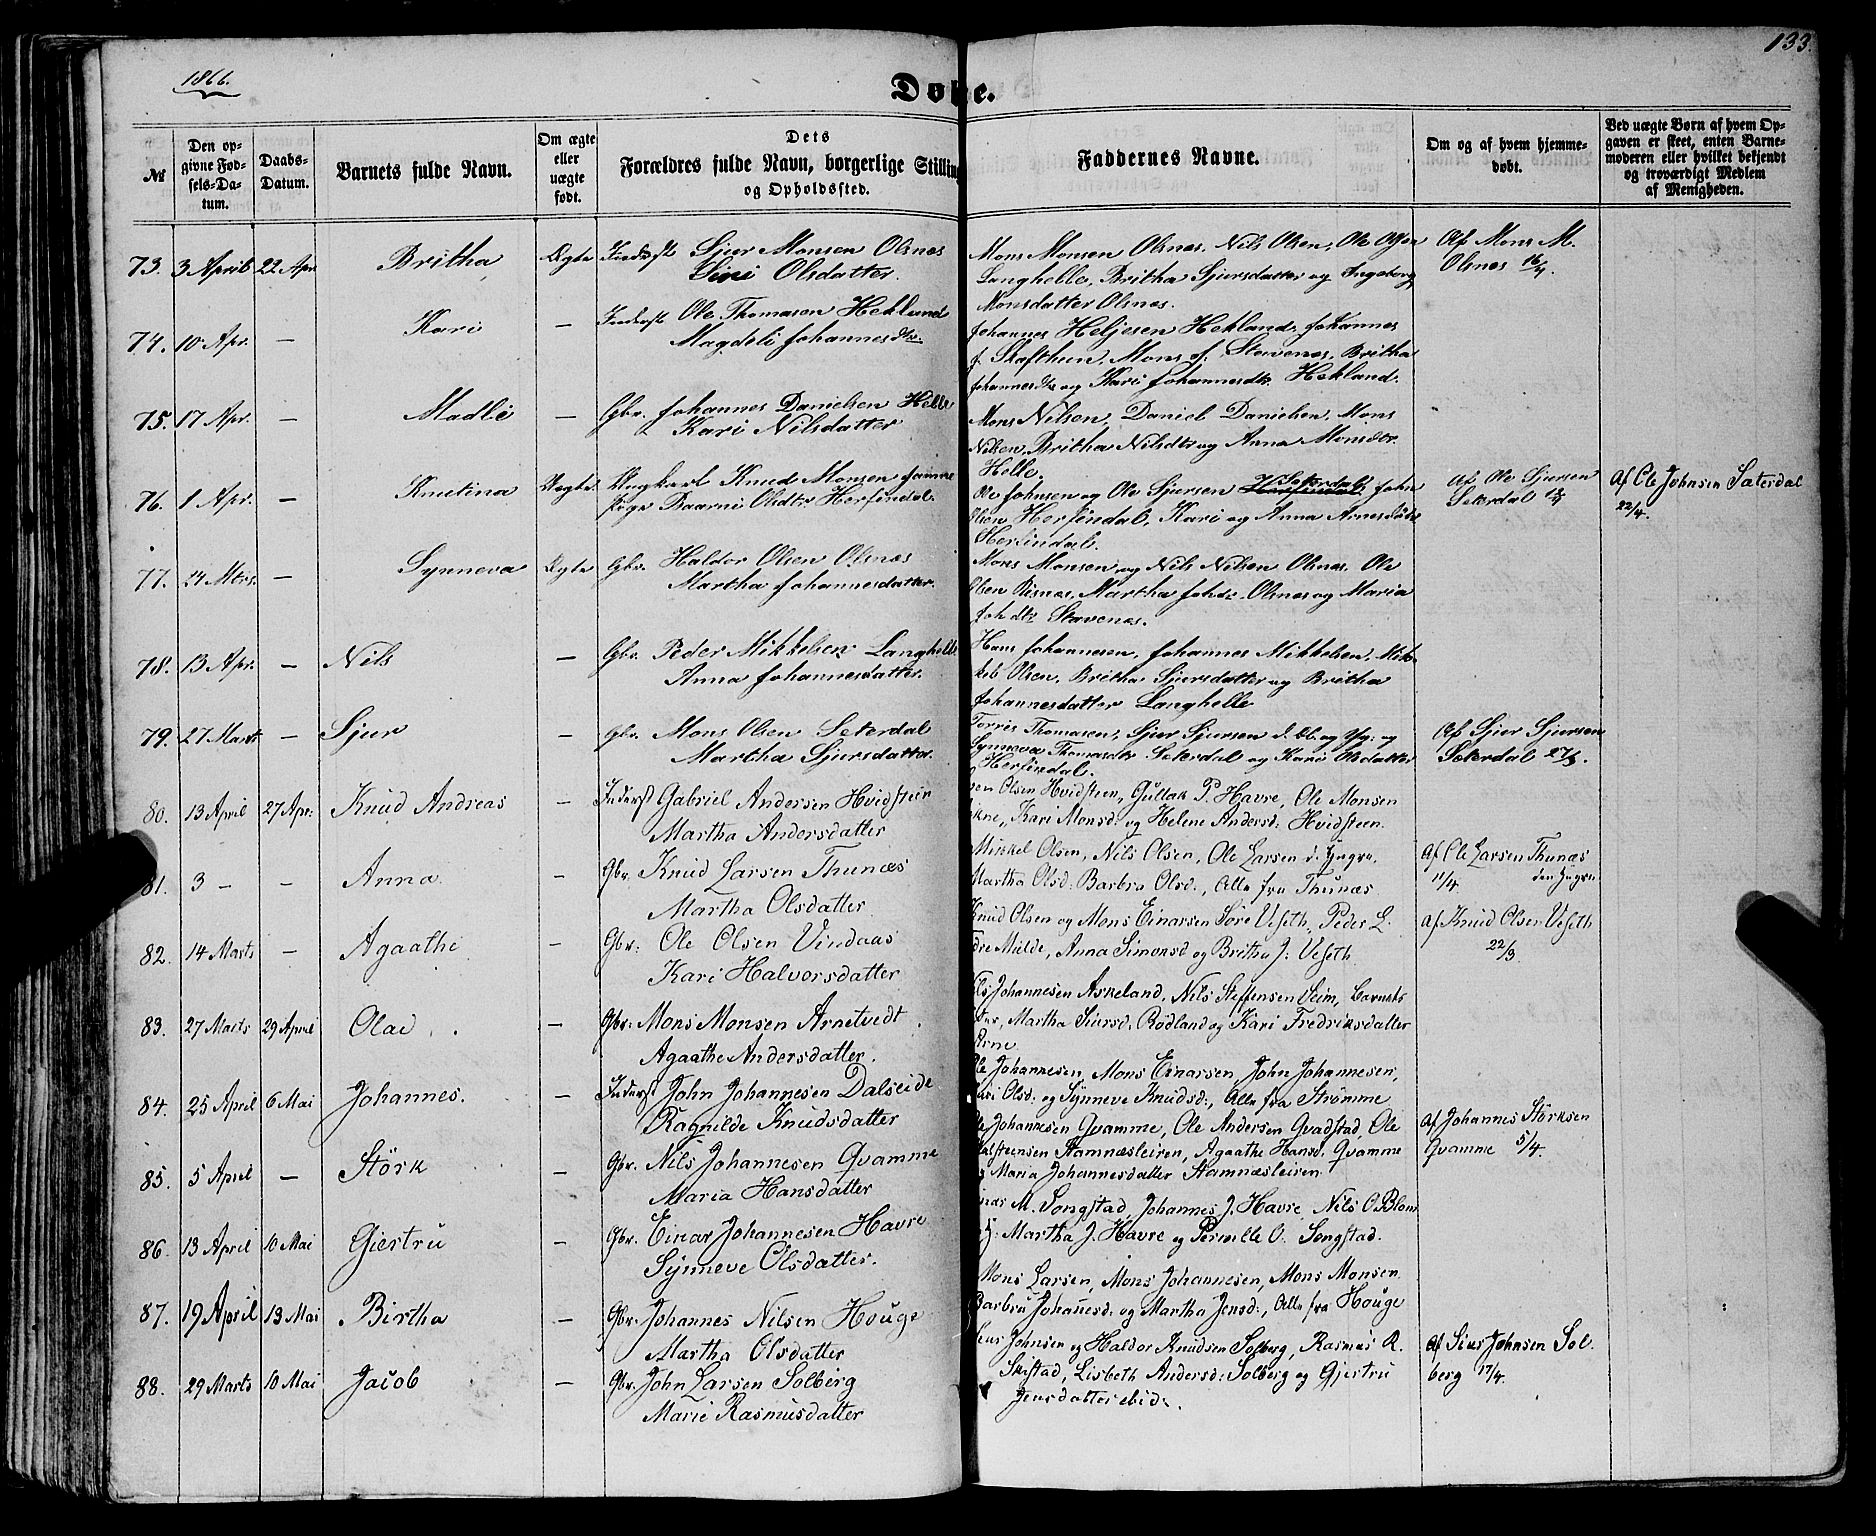 133.
1866.
Døbte.
№
Den op-
givne Fød-
sels-Da-
tum.
Daabs-
Datum.
Barnets fulde Navn.
Om ægte
eller
uægte
født.
Dets
Forældres fulde Navn, borgerlige Stilling
og Opholdssted.
Faddernes Navne.
Om og af hvem hjemme-
døbt.
Ved uægte Børn af hvem Op-
gaven er skeet, enten Barne-
moderen eller hvilket bekjendt
og troværdigt Medlem
af Menigheden.
73. 3 April 22 Apr. Britha Ægte Inderst Sjur Monsen Olsnes
Siri Olsdatter.
Mons Monsen Olsnes, Nils Olsen, Ole Olsen
Langhelle, Britha Sjursdatter og Ingeborg
Monsdatter Olsnes.
Af Mons M.
Olsnes 16/4.
74. 10 Apr. — Kari — Inderst Ole Thomasen Hekland
Magdeli Johannesdtr.
Johannes Heljesen Hekland, Johannes
J. Skaftheen, Mons J. Stavenes, Britha
Johannesdtr og Kari Johannesdtr. Hekland.
75. 17 Apr. — Madli — Gbr. Johannes Danielsen Helle
Kari Nilsdatter
Mons Nilsen, Daniel Danielsen, Mons
Nilsen, Britha Nilsdtr og Anna Monsdtr.
Helle.
76. 1 Apr. — Knutina Uægte Ungkarl Knud Monsen Famme
Pige Baarni Olsdtr. Herfindal.
Ole Johnsen og Ole Sjursen Seterdal, John
Olsen Herfindal, Kari og Anna Arnesdøtre
Herfindal.
Af Ole Sjursen
Seterdal
Af Ole Johnsen Sæterdal
22/4.
77. 24 Mrs. — Synneva Ægte Gbr. Haldor Olsen Olsnes
Martha Johannesdatter.
Mons Monsen og Nils Nilsen Olsnes, Ole
Olsen Risnes, Martha Johdtr. Olsnes og Maria
Joh.dtr. Stavenes.
78. 13 Apr. — Nils — Gbr. Peder Mikkelsen Langhelle
Anna Johannesdatter.
Hans Johannesen, Johannes Mikkelsen, Mik-
kel Olsen, Britha Sjursdatter og Britha
Johannesdatter Langhelle
79. 27 Marts — Sjur — Gbr. Mons Olsen Seterdal
Martha Sjursdatter.
Torris Thomasen, Sjur Sjursen d. Æl. og Yng. og
Synneva Thomasdtr Seterdal og Kari Olsdatter
Herfindal.
Af Sjur Sjursen
Seterdal 27/3.
80. 13 April 27 Apr. Knud Andreas — Inderst Gabriel Andersen Hvidsteen
Martha Andersdatter
Olsen Hvidsteen, Gullak P. Havre, Ole Monsen
Kari Monsd: og Helene Andersd: Hvidsteen.
81. 3 — — Anna — Gbr. Knud Larsen Thunæs
Martha Olsdatter
Mikkel Olsen, Nils Olsen, Ole Larsen d. Yngre,
Martha Olsd: Barbra Olsd:, Alle fra Thunæs
Af Ole Larsen Thunæs
11/4. den Yngre
82. 14 Marts — Agaathe — Gbr: Ole Olsen Vindaas
Kari Halvorsdatter
Knud Olsen og Mons Einarsen Søre Veseth, Peder L.
Midre Mulde, Anna Simonsd og Britha J: Veseth.
Af Knud Olsen Veseth
22/3.
83. 27 Marts 29 April Olai — Gbr: Mons Monsen Arnetvedt
Agaathe Andersdatter.
Nils Johannesen Askeland, Nils Steffensen Seim, Barnets
Martha Siursd: Rødland og Kari Fredriksdatter
Arne
84. 25 April 6 Mai Johannes. — Inderst John Johannesen Dalseide
Ragnilde Knudsdatter
Ole Johannesen, Mons Einarsen, John Johannesen,
Kari Olsd: og Synneve Knudsd:, Alle fra Strømme
85. 5 April — Størk — Gbr. Nils Johannesen Qvamme
Maria Hansdatter
Ole Johannesen Qvamme, Ole Andersen Qvadstad, Ole
Halsteensen Stamnæsleiren, Agaathe Hansd: Qvamme
og Maria Johannesdatter Stamnæsleiren
Af Johannes Størksen
Qvamme 5/4.
86. 13 April 10 Mai Giertru — Gbr. Einar Johannesen Havre
Synneve Olsdatter.
M. Songstad, Johannes J. Havre, Nils O. Blom
Martha J. Havre og Pernille O. Songstad.
87. 19 April 13 Mai Birtha — Gbr. Johannes Nilsen Houge
Martha Olsdatter
Mons Larsen, Mons Johannesen, Mons Monsen
Barbru Johanesd: og Martha Jensd:, Alle fra Houge
88. 29 Marts 10 Mai Jacob — Gbr. John Larsen Solberg
Marie Rasmusdatter
Johnsen og Haldor Knudsen Solberg, Rasmus R.
Skistad, Lisbeth Andersd: Solberg og Gjertru
Jensdatter ibid:.
Af Sius Johnsen Sol-
berg 17/4.